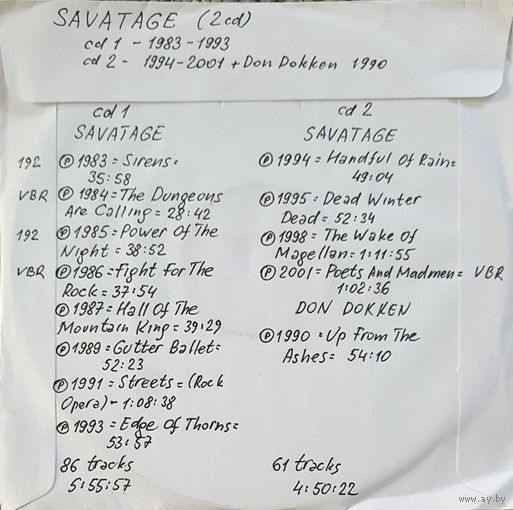 SAVATAGE (2cd)
cd 1 - 1983-1993
cd 2 - 1994-2001 + Don Dokken 1990
cd 1
SAVATAGE
192 Ⓟ 1983 = Sirens =
35:58
VBR Ⓟ 1984 = The Dungeons
Are Calling = 28:42
192 Ⓟ 1985 = Power Of The
Night = 38:52
VBR Ⓟ 1986 = Fight For The
Rock = 37:54
Ⓟ 1987 = Hall Of The
Mountain King = 39:29
Ⓟ 1989 = Gutter Ballet =
52:23
Ⓟ 1991 = Streets = (Rock
Opera) - 1:08:38
Ⓟ 1993 = Edge Of Thorns =
53:57
86 tracks
5:55:57
cd 2
SAVATAGE
Ⓟ 1994 = Handful Of Rain =
49:04
Ⓟ 1995 = Dead Winter
Dead = 52:34
Ⓟ 1998 = The Wake Of
Magellan = 1:11:55
Ⓟ 2001 = Poets And Madmen = VBR
1:02:36
DON DOKKEN
Ⓟ 1990 = Up From The
Ashes = 54:10
61 tracks
4:50:22
www.ay.by